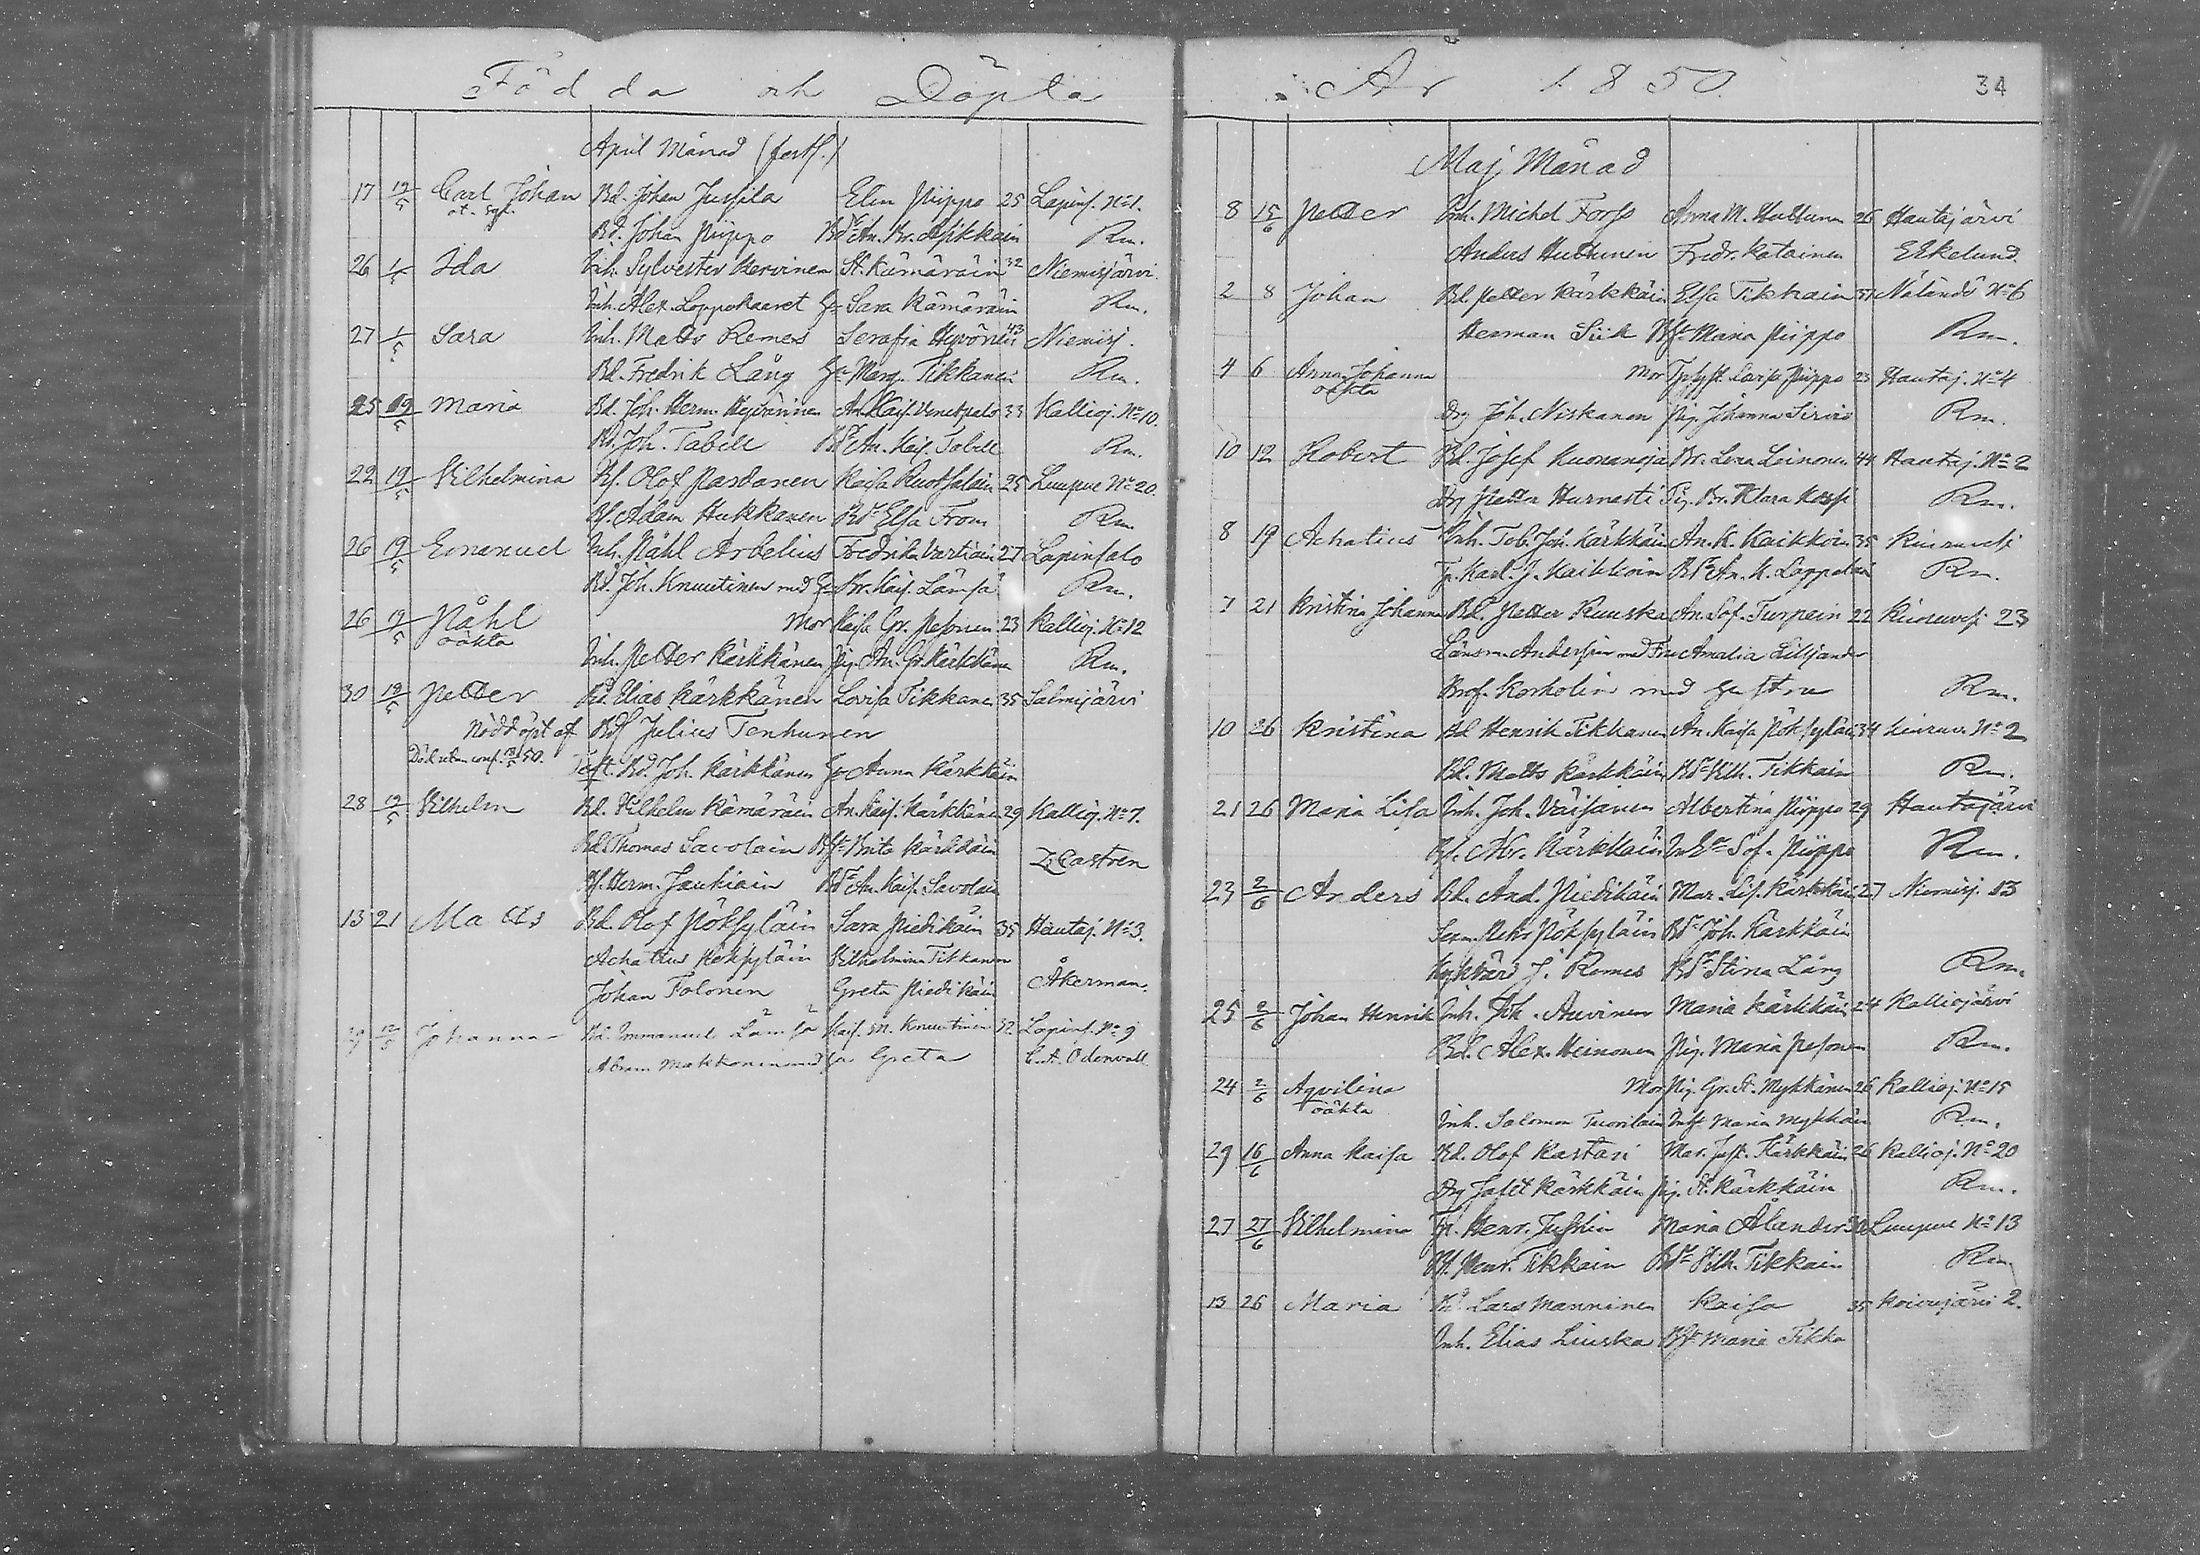 Födda och Döpta
April Månad (forts.)
17 19/5 Carl Johan Bd. Johan Jussila Elin Piippo 25 Lapins. No 1.
Bd. Johan Piippo Bda An. Br. Asikkain Rm.
26 1/5 Ida Inh. Sylvester Kervinen St. Kämäräin 32 Niemisjärvi
Inh. Alex. Loppokaaret Sara Kämäräin Rm.
27 1/5 Sara Inh. Matts Remes Serafia Hyvönen 43 Niemisj.
Bd. Fredrik Lång Hu Marg. Tikkanen Rm.
25 19/5 Maria Bd. Joh. Herm. Hyvärinen An. Kais. Venetpalo 33 Kallioj. No 10.
Bd. Joh. Tabell Bda An. Kais. Tabell Rm.
22 19/5 Vilhelmina Bs. Olof Pardanen Kaisa Ruotsalain 25 Luupue No 20.
Bs. Adam Hukkanen Bda Elsa From Rm.
26 19/5 Emanuel Inh. Påhl Arbelius Fredrika Vartiain 27 Lapinsalo
Bd. Joh. Knuutinen med Hu Br. Kais. Lämsä Rm.
26 19/5 Påhl Mor Kaisa Gr. Pesonen 23 Kallioj. No 12
oäkta
Inh. Petter Kärkkänen Pig. An. Gr. Kärkkäin Rm.
30 19/5 Petter Bd. Elias Kärkkänen Lovisa Tikkanen 35 Salmijärvi
Nöddöpt af Bds Julius Tenhunen
Test. Bd. Joh. Kärkkänen Hu Anna Kärkkäin
28 19/5 Vilhelm Bd. Vilhelm Kämäräin An. Kais. Kärkkänen 29 Kallioj. No 7.
Bd. Thomas Savolain Brita Kärkkäin
Z. Castren
Bs. Herm. Jauhiain Bda An. Kais. Savolain
13 21 Matts Bd. Olof Pöksyläin Sara Piedikäin 35 Hautaj. No 3.
Achatius Pöksyläin Vilhelmina Tikkanen
Johan Tolonen Greta Piedikäin Åkerman.
29 12/5 Johanna Bd. Immanuel Lämsä Kais. M. Knuutinen 32 Lapins. No 9
Abram Makkonen med Hu Greta C. A. Odenvall
År 1850. 34
Maj Månad
8 15/6 Petter Inh. Michel Forss Anna M. Huttunen 26 Hautajärvi
Anders Huttunen Fredr. Katainen Ekelund.
2 8 Johan Bd. Petter Kärkkäin Elsa Tikkain 31 Näländö No 6
Herman Siik Maria Piippo Rm.
4 6 Anna Johanna Mor Lovisa Piippo 23 Hautaj. No 4
oäkta
Drg Joh. Niskanen Pig. Johanna Sirviö Rm.
10 12 Robert Bd. Josef Kuonanoja Br. Lena Leinonen 44 Hautaj. No 2
Drg Petter Hurnasti Pig. Br. Klara Rm.
8 19 Achatius Inh. Tob. Joh. Kärkkäin An. K. Kaikkoin 35 Kiuruvesi
Tp. Karl J. Kaikkoin Bda An. K. Loppolain Rm.
7 21 Kristina Johanna Bd. Petter Ruuska An. Sof. Turpein 22 Kiuruvesi 23
Länsm. Andersin med Fru Amalia Lilljander
Prof. Korholin med Hustru Rm.
10 26 Kristina Bd. Henrik Tikkanen An. Kaisa Pöksyläin 34 Kiuruv. No 2
Bd. Matts Kärkkäin Bda Vilh. Tikkain Rm.
21 26 Maria Lisa Inh. Joh. Väisänen Albertina Piippo 29 Hautajärvi
Bs. Abr. Kärkkäin Sof. Piippo Rm.
23 2/6 Anders Bd. And. Piedikäin Mar. Lis. Kärkkäin 27 Niemisj. 13
Pehr Pöksyläin Bda Joh. Kärkkäin
Kyrkvärd J. Remes Bda Stina Lång Rm.
25 2/6 Johan Henrik Inh. Joh. Auvinen Maria Kärkkäin 24 Kalliojärvi
Bd. Alex. Heinonen Pig. Maria Pesonen Rm.
24 2/6 Aqvilina Mor Pig. Gr. St. Mykkänen 26 Kallioj. No 15
oäkta
Inh. Salomon Tuorilain Maria Mykkäin Rm.
29 16/6 Anna Kaisa Bd. Olof Kastari Mar. Just. Kärkkäin 26 Kallioj. No 20
Drg Jafet Kärkkäin Pig. St. Kärkkäin Rm.
27 27/6 Vilhelmina Tp. Henr. Jusslin Maria Ålander Luupue No 13
Bs. Henr. Tikkain Bda Vilh. Tikkain Rm.
13 26 Maria Bd. Lars Manninen Kaisa 35 Koivujärvi 2.
Inh. Elias Liuska Maria Tikka